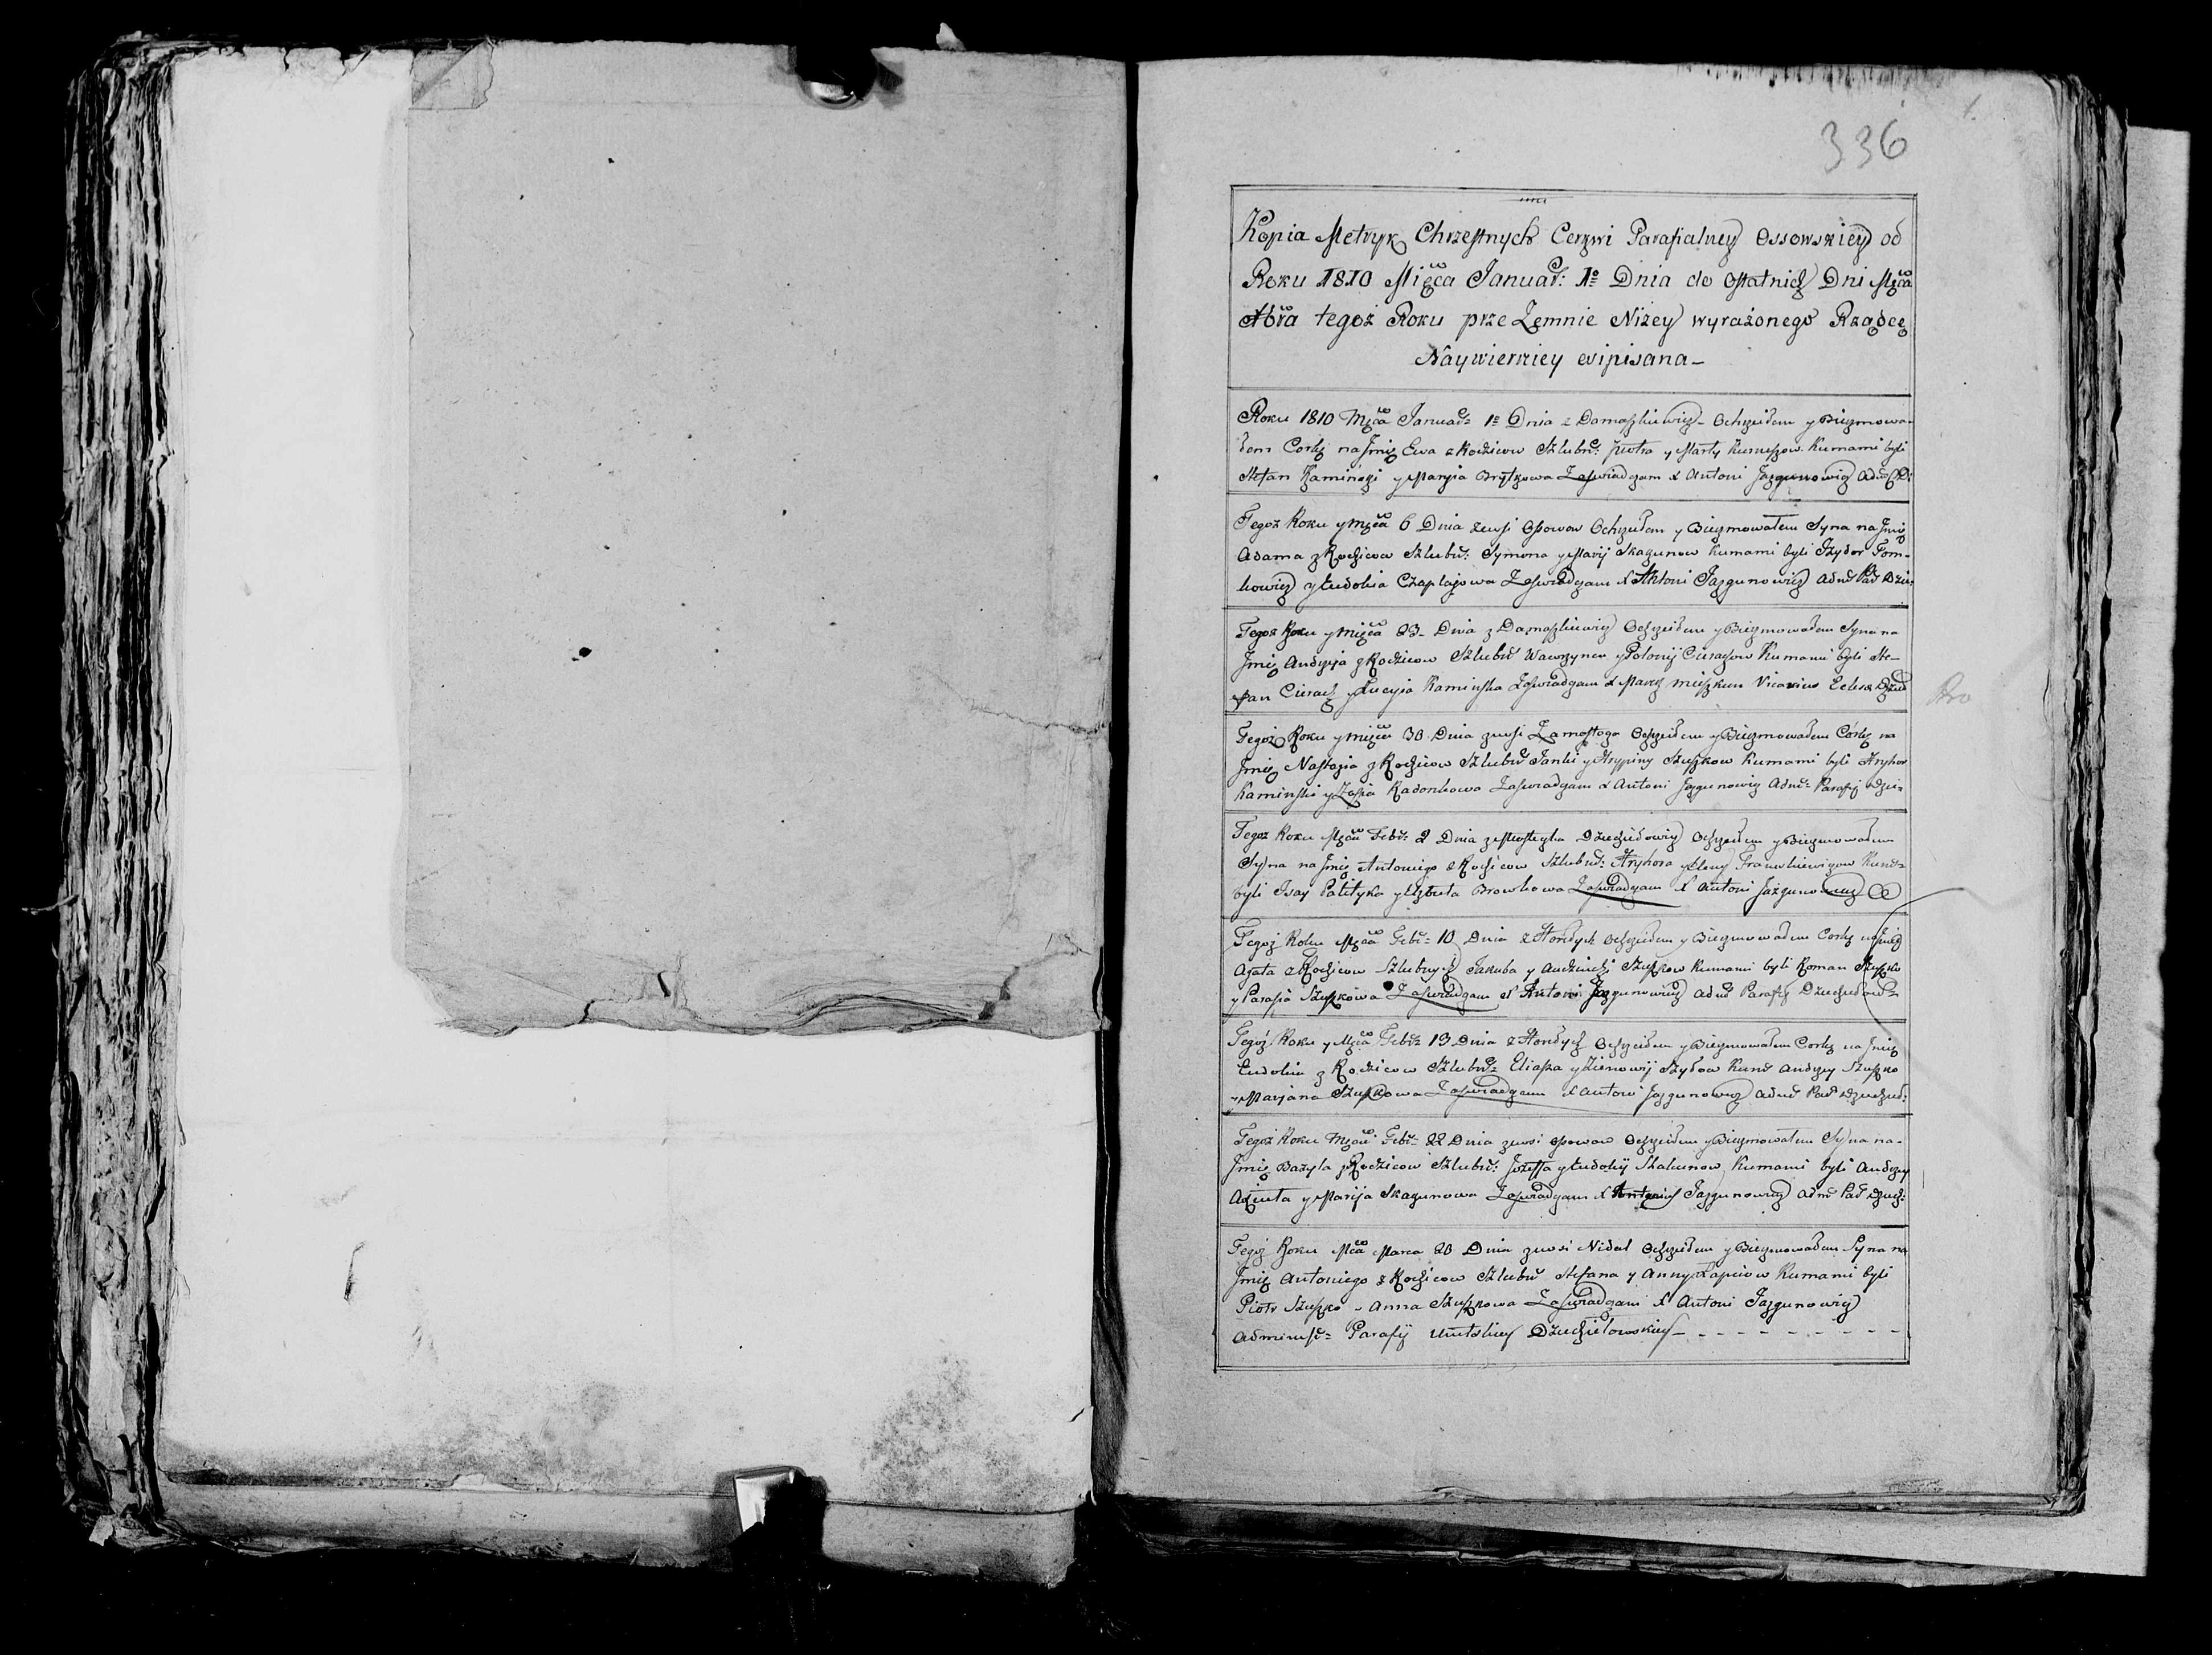 1.
336
Kopia Metryk Chrzestnych Cerkwi Parafialney Ossowskiey od
Roku 1810 Mięca Januar: 1º Dnia do ostatnich Dni Mca
tegoż Roku prze Zemnie Niżey wyrażonego Rządcę
Naywierniey wipisana –
Roku 1810 Mca Januar: 1º Dnia z Damaszkiewicz Ochrzciłem y Bierzmowa-
łem Corkę na Jmię Ewa z Rodzicow Szlubn: Piotra y Marty Kumami byli
Stefan Kamiński y Maryia Brytkowa Zaswiadczam X Antoni Jazgunowicz
Tegoż Roku y Mca 6 Dnia zewsi Osowow Ochrzciłem y Bierzmowałem Syna na Jmię
Adama z Rodzicow Szlubn: Symona y Maryi Skagunow Kumami byli Izydor Tom-
kowicz y Eudokia Czaplajowa Zaswiadczam X Antoni Jazgunowicz Adm Par
Tegoż Roku y Mięca 23 – Dnia z Damaszkiewicz Ochrzciłem y Bierzmowałem Syna na
Jmię Andrzeja z Rodzicow Szlubn Wawrzynca y Polonij Cierachow Kumami byli Ste-
fan Cierach y Lucyia Kaminska Zaswiadczam X Vicarius
Tegoż Roku y mięca 30 Dnia zewsi Zamostoga Ochrzciłem y Bierzmowałem Córkę na
Jmię Nastazia z Rodzicow Szlubn Janki y Ahrypiny Szuszkow Kumami byli Hryhor
Kaminski y Zosia Radonkowa Zaswiadczam X Antoni Jazgunowicz Adm: Parafij
Tegoż Roku Mca Febr: 2 Dnia z Miasteczka Dzięciołowicz Ochrzciłem y Bierzmowałem
Syna na Jmię Antoniego z Rodzicow Szlubn: Hryhora y Eleny Franckiewiczow Kum:
byli Isay Palityka y Elżbieta Browkowa Zaswiadczam X Antoni Jazgunowicz
Tegoż Roku Mca Febr: 10 Dnia z Hordych Ochrzciłem y Bierzmowałem Corkę na Jmię
Agata z Rodzicow Szlubnych Jakuba y Szuszkow Kumami byli Roman Szuszko
y Parasia Szuszkowa Zaswiadczam X Antoni Jazgunowicz Adm Parafij
Tegoż Roku y Mca Febr: 13 Dnia z Hordych Ochrzciłem y Bierzmowałem Corkę na Jmię
Eudokia z Rodzicow Szlubn: Eliasza y Zienowij Szydow Kum: Andrzey Szuszko
y Maryana Szuszkowa Zaswiadczam X Antoni Jazgunowicz Adm Par
Tegoż Roku Mca Febr: 22 Dnia zewsi Osowow Ochrzciłem y Bierzmowałem Syna na-
Jmię Bazyla z Rodzicow Szlubn: Jozefa y Eudokij Skakunow Kumami byli Andrzey
y Maryia Skagunowa Zaswiadczam X Antoni Jazgunowicz Adm Par
Tegoż Roku Mca Marca 20 Dnia zewsi Nidal Ochrzciłem y Bierzmowałem Syna na
Jmię Antoniego z Rodzicow Szlubn Stefana y Anny Łapciow Kumami byli
Piotr Szuszko – Anna Szuszkowa Zaswiadczam X Antoni Jazgunowicz
Administ: Parafij Unitskiey Dzięciołowskiey